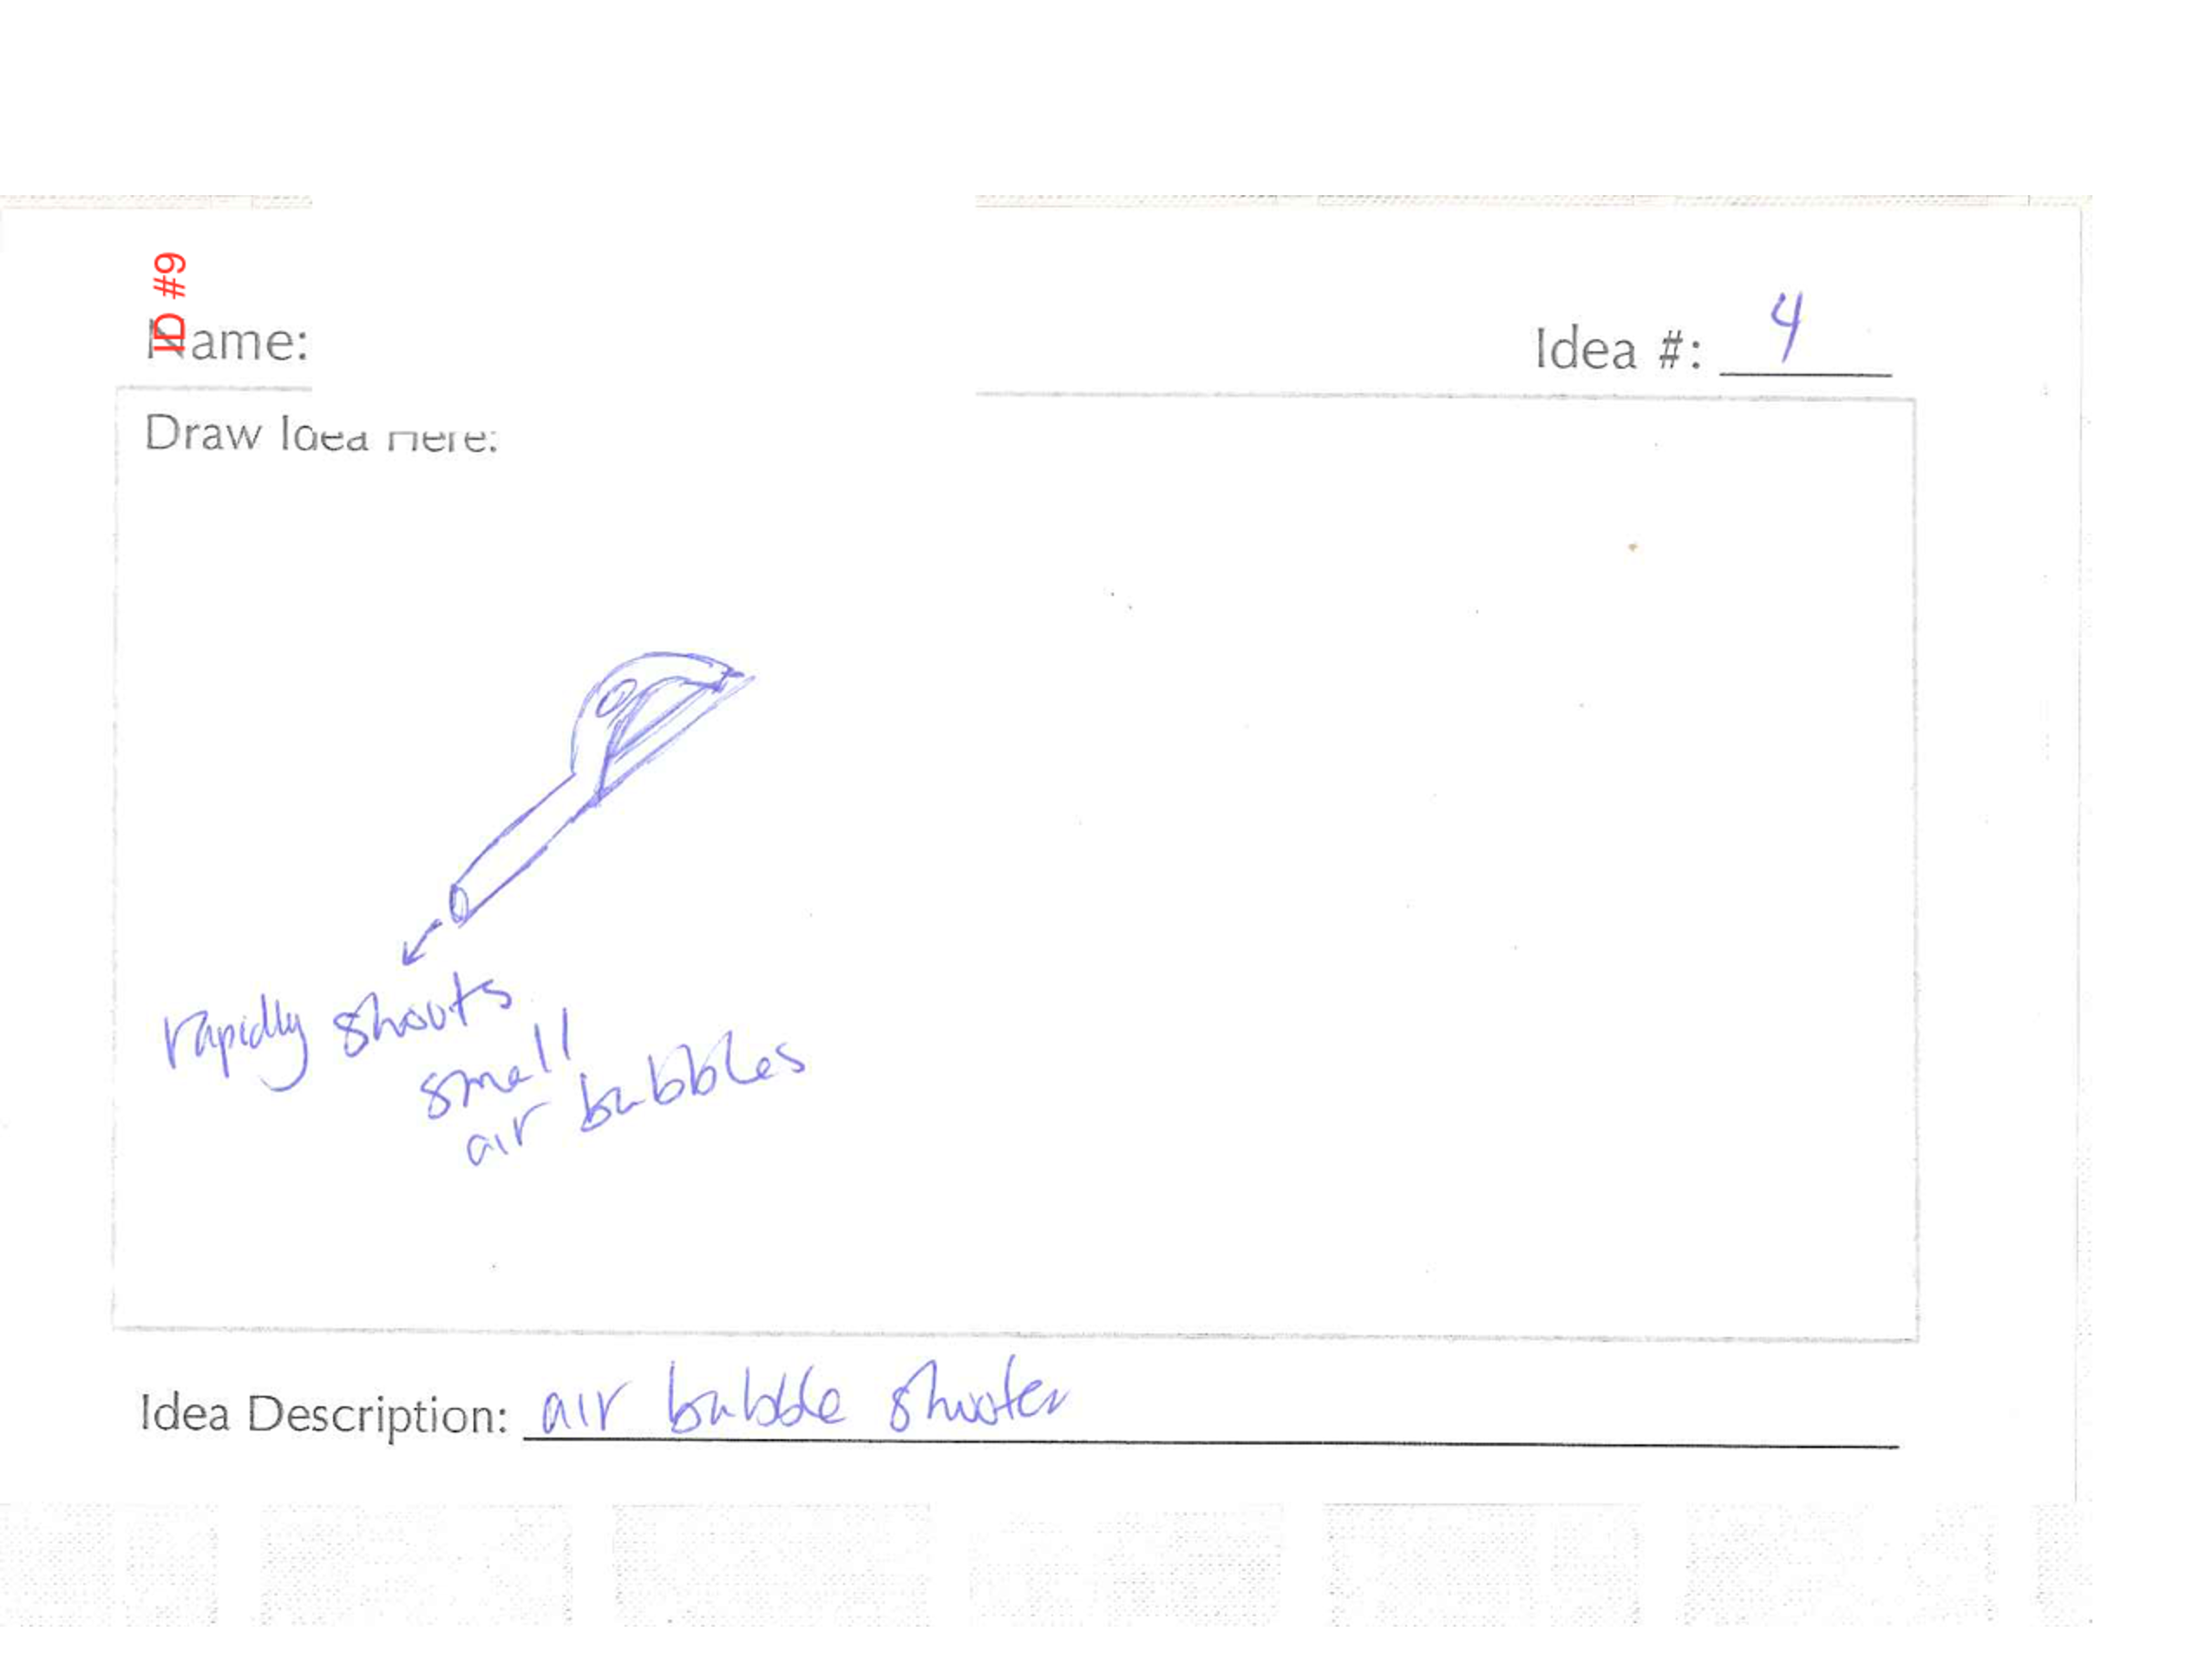 ID #9
Name:
Idea #: 4
Draw Idea Here:
rapidly shoots
small
air bubbles
Idea Description: air bubble shooter